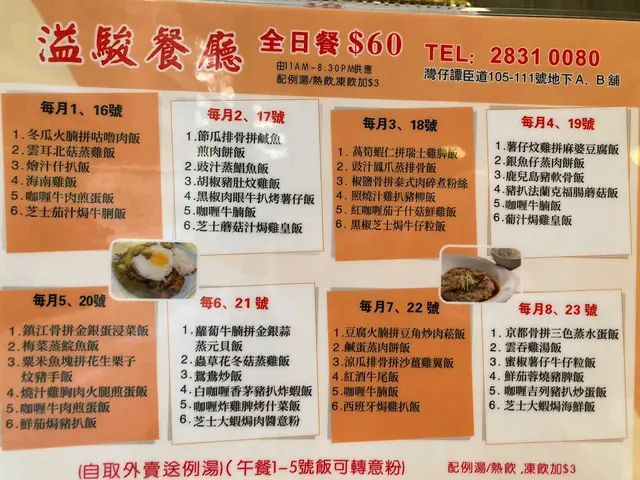 溢駿餐廳
全日餐 $60
由11AM-8:30PM供應
配例湯/熱飲,凍飲加$3
TEL: 2831 0080
灣仔譚臣道105-111號地下A、B舖
每月1、16號
1.冬瓜火腩拼咕嚕肉飯
2.雲耳北菇蒸雞飯
3.燴汁什扒飯
4.海南雞飯
5.咖喱牛肉煎蛋飯
6.芝士茄汁焗牛脷飯
每月2、17號
1.節瓜排骨拼鹹魚
煎肉餅飯
2.豉汁蒸鯧魚飯
3.胡椒豬肚炆雞飯
4.黑椒肉眼牛扒烤薯仔飯
5.咖喱牛腩飯
6.芝士蘑菇汁焗雞皇飯
每月3、18號
1.萵筍蝦仁拼瑞士雞脾飯
2.豉汁鳳爪蒸排骨飯
3.椒鹽骨拼泰式肉碎煮粉絲
4.照燒汁雞扒豬柳飯
5.紅咖喱茄子什菇鮮雞飯
6.黑椒芝士焗牛仔粒飯
每月4、19號
1.薯仔炆雞拼麻婆豆腐飯
2.銀魚仔蒸肉餅飯
3.鹿兒島豬軟骨飯
4.豬扒法蘭克福腸蘑菇飯
5.咖喱牛腩飯
6.葡汁焗雞皇飯
每月5、20號
1.鎮江骨拼金銀蛋浸菜飯
2.梅菜蒸鯇魚飯
3.粟米魚塊拼花生栗子
炆豬手飯
4.燒汁雞胸肉火腿煎蛋飯
5.咖喱牛肉煎蛋飯
6.鮮茄焗豬扒飯
每6、21號
1.蘿蔔牛腩拼金銀蒜
蒸元貝飯
2.蟲草花冬菇蒸雞飯
3.鴛鴦炒飯
4.白咖喱香茅豬扒炸蝦飯
5.咖喱炸雞脾烤什菜飯
6.芝士大蝦焗肉醬意粉
每月7、22號
1.豆腐火腩拼豆角炒肉菘飯
2.鹹蛋蒸肉餅飯
3.涼瓜排骨拼沙薑雞翼飯
4.紅酒牛尾飯
5.咖喱牛腩飯
6.西班牙焗雞扒飯
每月8、23號
1.京都骨拼三色蒸水蛋飯
2.雲吞雞湯飯
3.蜜椒薯仔牛仔粒飯
4.鮮茄蓉燒豬脾飯
5.咖喱吉列豬扒炒蛋飯
6.芝士大蝦焗海鮮飯
(自取外賣送例湯)(午餐1-5號飯可轉意粉)
配例湯/熱飲,凍飲加$3